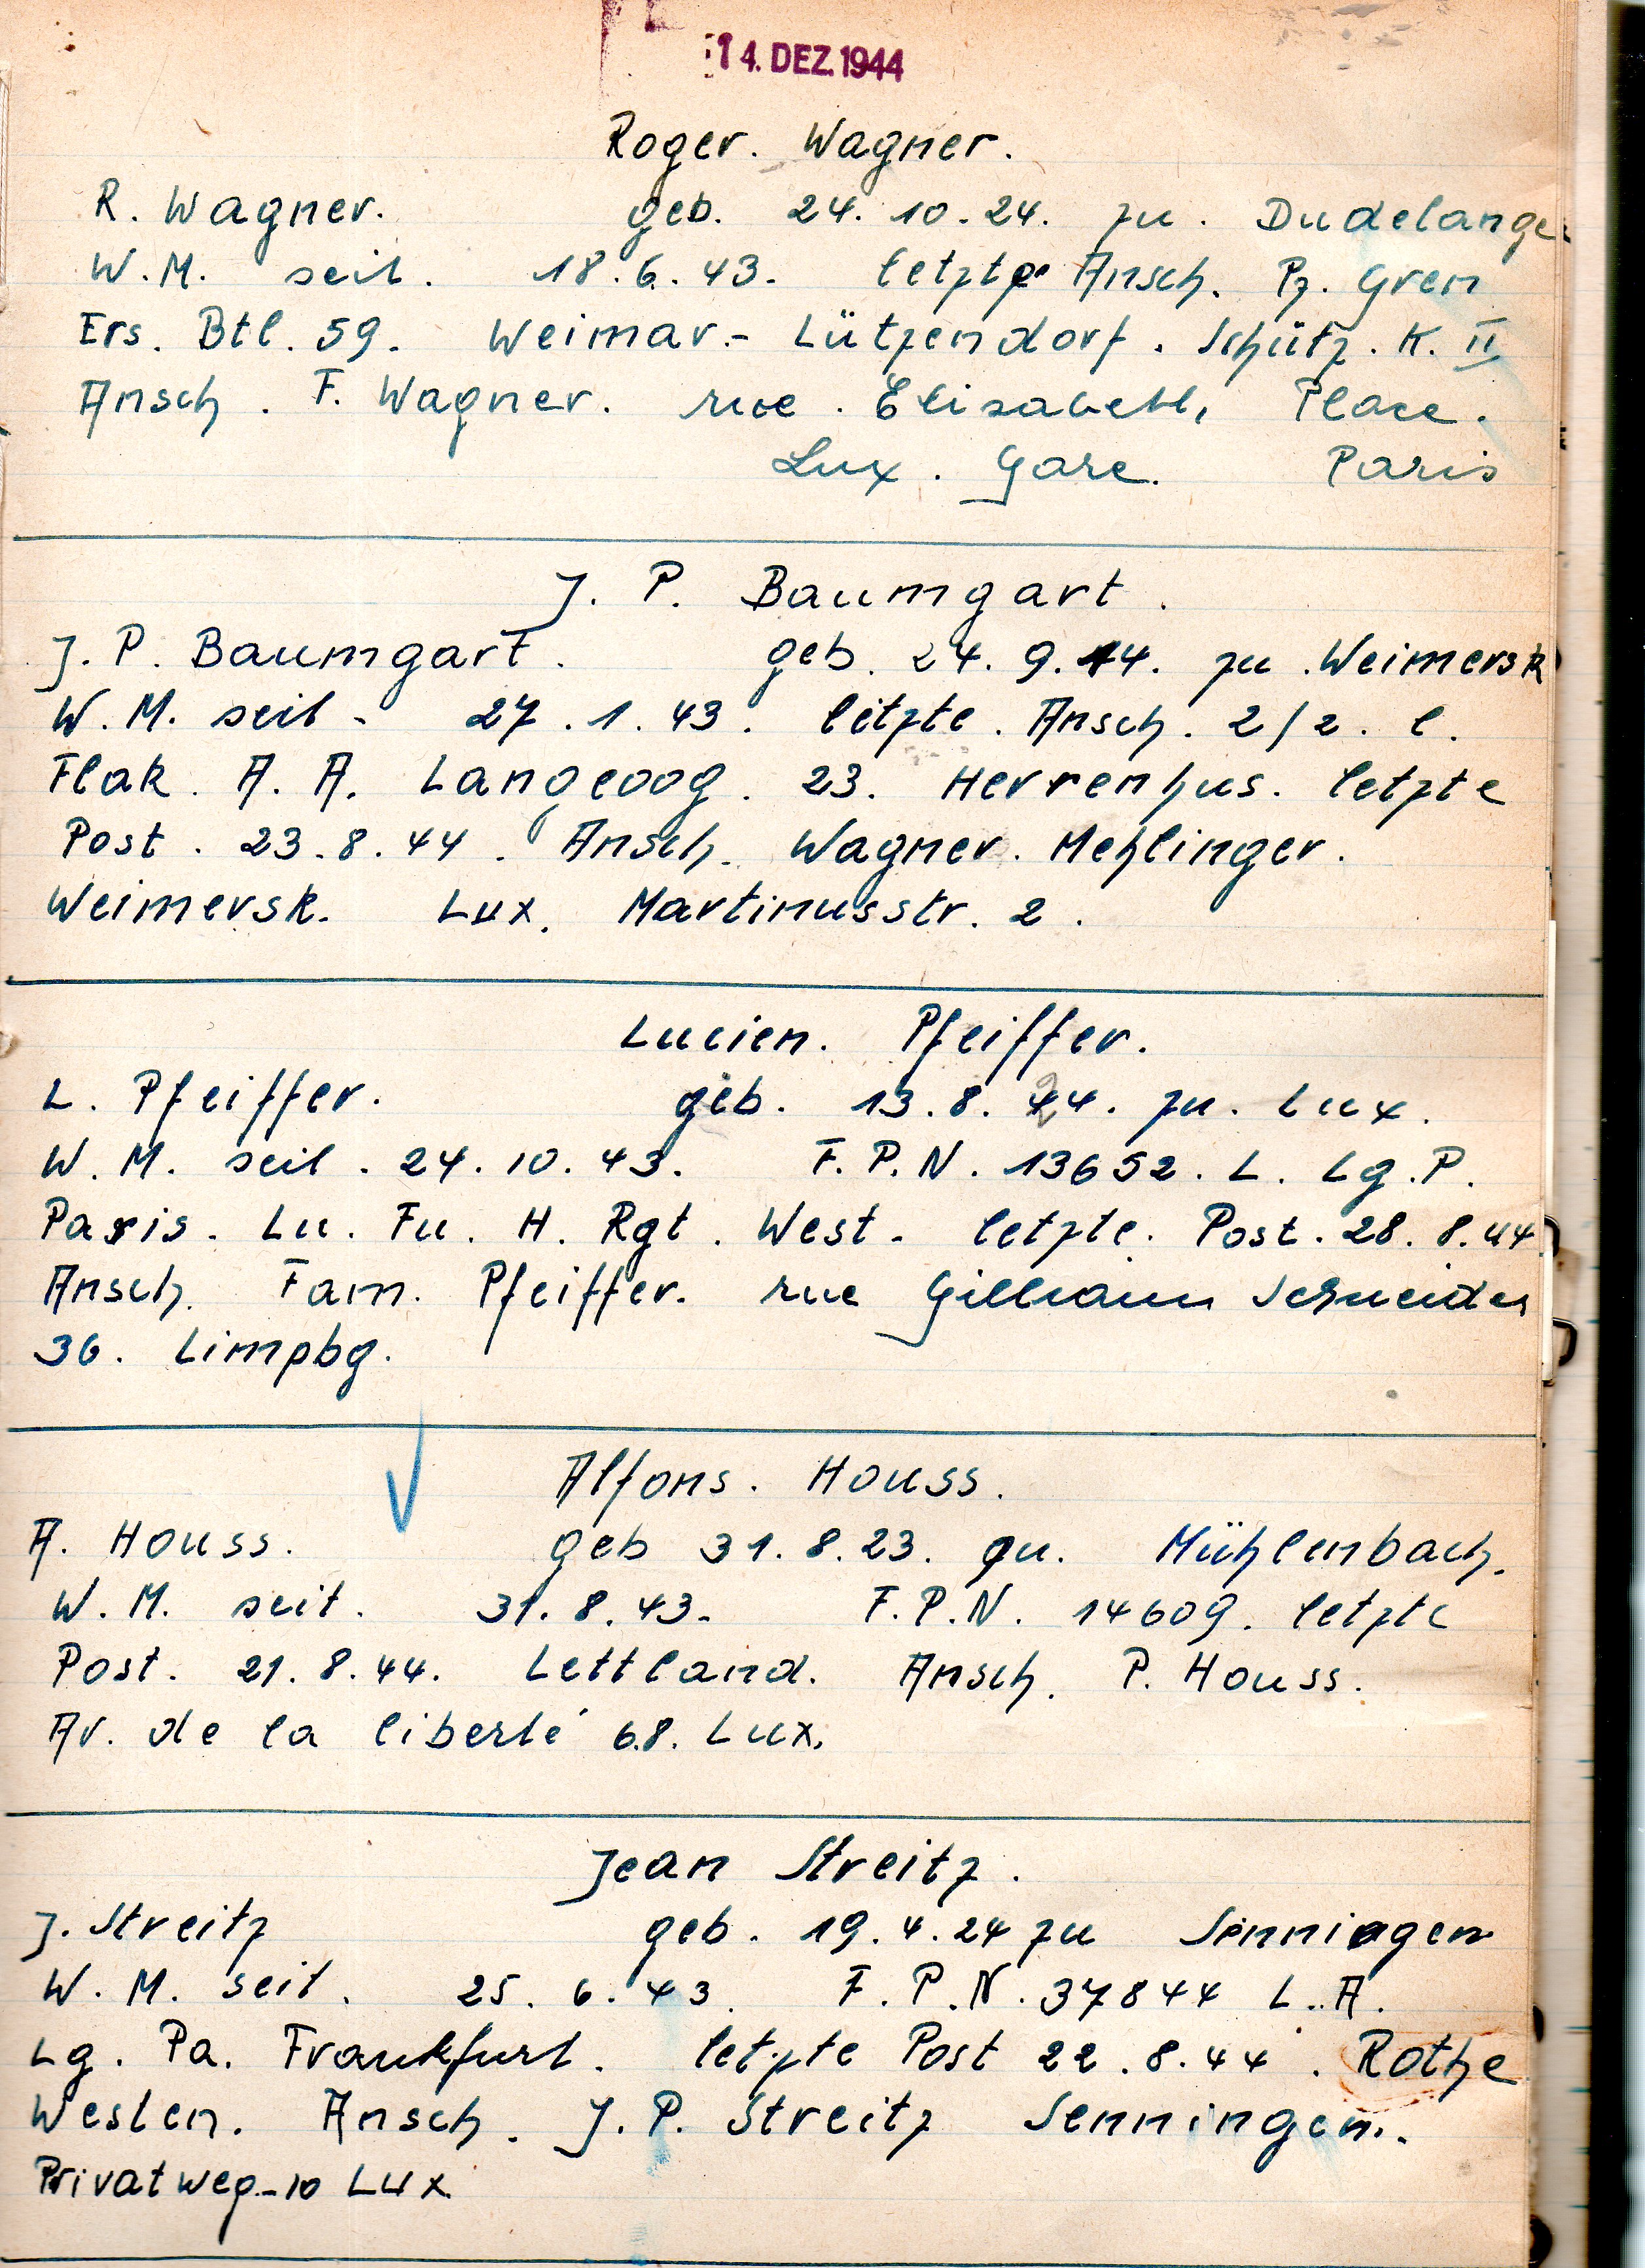 14. DEZ. 1944
Roger. Wagner.
R. Wagner. geb. 24. 10. 24. zu. Dudelange
W. M. seit. 18. 6. 43. letzte Ansch. Pz. Gren
Ers. Btl. 59. Weimar.- Lützendorf. Schütz. K. II
Ansch. F. Wagner. rue. Elisabeth, Place.
Lux. Gare. Paris
J. P. Baumgart.
J. P. Baumgart. geb. 24. 9. 14. zu. Weimersk
W. M. seit - 27. 1. 43. letzte. Ansch. 2/2. l.
Flak. A. A. Langeoog. 23. Herrenhus. letzte
Post. 23. 8. 44. Ansch. Wagner. Mehlinger.
Weimersk. Lux. Martinusstr. 2.
Lucien. Pfeiffer.
L. Pfeiffer. geb. 13. 8. 24. zu. Lux.
W. M. seit. 24. 10. 43. F. P. N. 13652. L. Lg. P.
Paris. Lu. Fu. H. Rgt. West. letzte. Post. 28. 8. 44
Ansch. Fam. Pfeiffer. rue Schneider
36. Limpbg.
Alfons. Houss.
A. Houss. geb 31. 8. 23. zu. Mühlenbach.
W. M. seit. 31. 8. 43. F. P. N. 14609. letzte
Post. 21. 8. 44. Lettland. Ansch. P. Houss.
Av. de la liberté 68. Lux.
Jean Streitz.
J. Streitz geb. 19. 4. 24 zu Senningen
W. M. seit. 25. 6. 43. F. P. N. 37844 L. A.
Lg. Pa. Frankfurt. letzte Post 22. 8. 44. Rothe
Westen. Ansch. J. P. Streitz Senningen.
Privatweg-10 Lux.